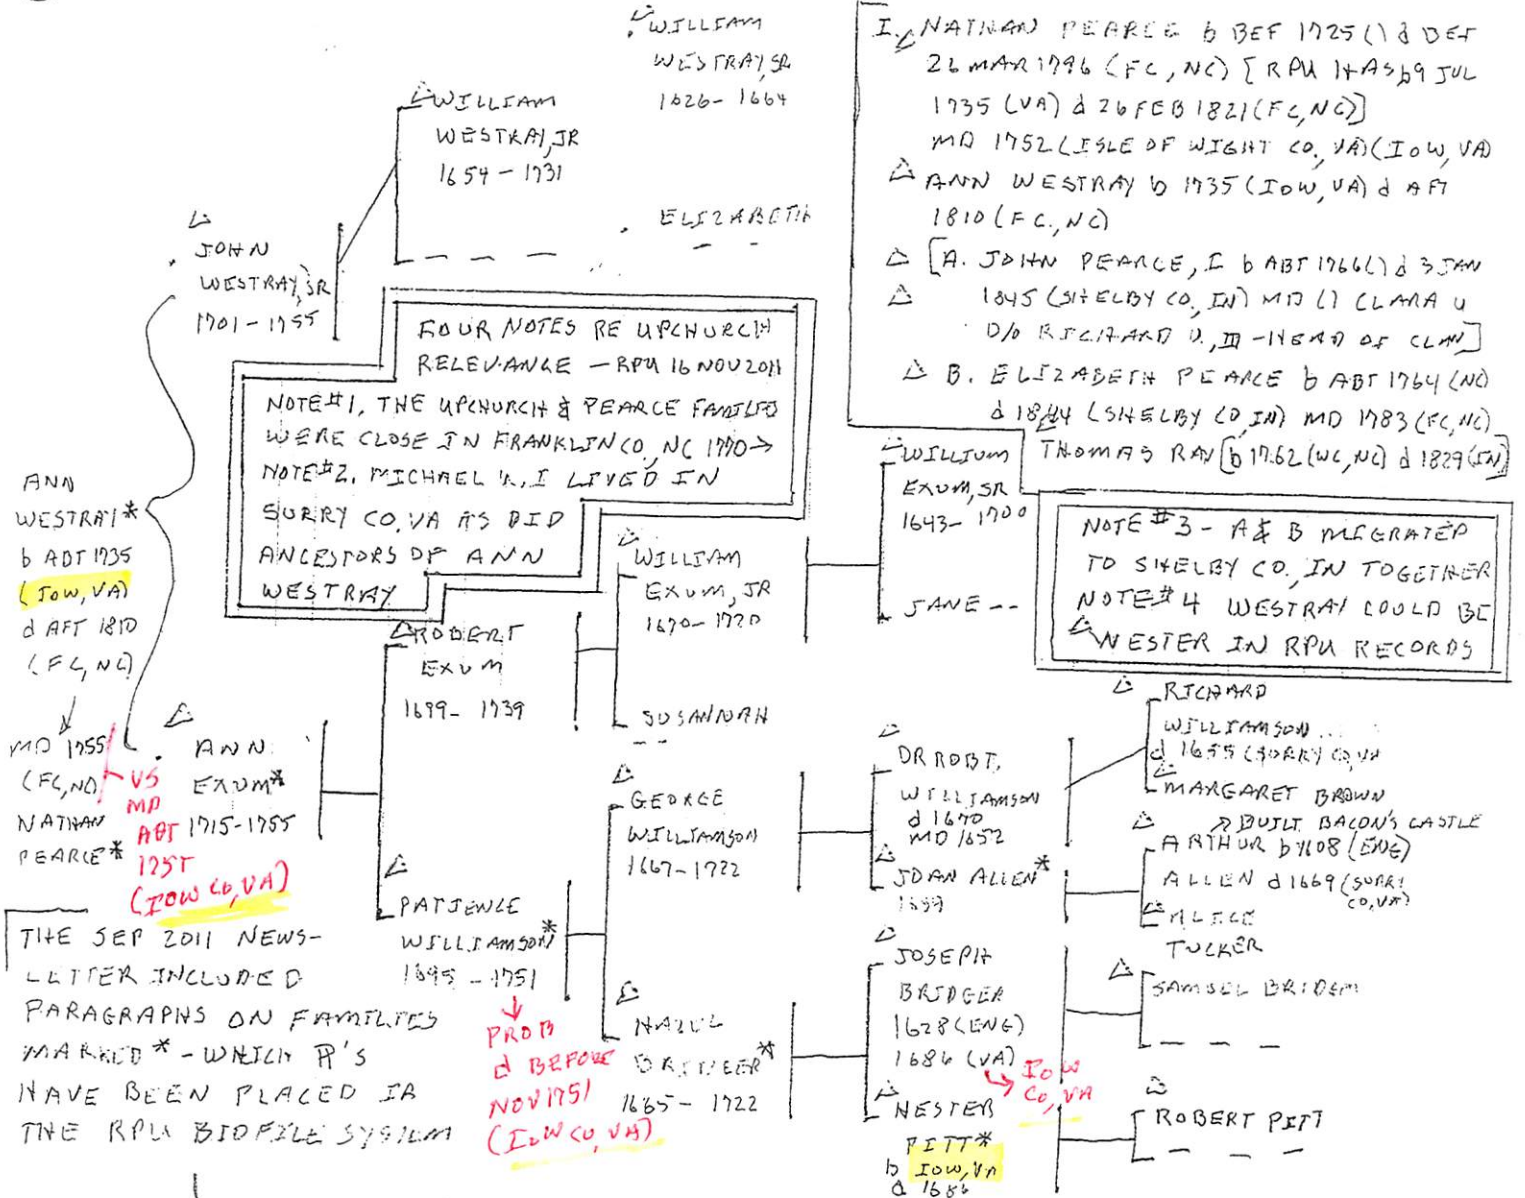 WILLIAM
WESTRAY, SR
1626-1664
WILLIAM
WESTRAY, JR
1654-1731
ELIZABETH
JOHN
WESTRAY, SR
1701-1755
I. NATHAN PEARCE b BEF 1725 () d BEF
26 MAR 1796 (FC, NC) [RPU HAS b 9 JUL
1735 (VA) d 26 FEB 1821 (FC, NC)]
MD 1752 (ISLE OF WIGHT CO., VA) (IOW, VA)
ANN WESTRAY b 1735 (IOW, VA) d AFT
1810 (FC, NC)
[A. JOHN PEARCE, I b ABT 1766 () d 3 JAN
1845 (SHELBY CO, IN) MD () CLARA U
D/O RICHARD U., III - HEAD OF CLAN]
B. ELIZABETH PEARCE b ABT 1764 (NC)
d 1844 (SHELBY CO, IN) MD 1783 (FC, NC)
THOMAS RAY [b 1762 (WC, NC) d 1829 (IN)]
FOUR NOTES RE UPCHURCH
RELEVANCE - RPU 16 NOV 2011
NOTE #1. THE UPCHURCH & PEARCE FAMILIES
WERE CLOSE IN FRANKLIN CO., NC 1770→
NOTE #2. MICHAEL U., I LIVED IN
SURRY CO, VA AS DID
ANCESTORS OF ANN
WESTRAY
NOTE #3 - A & B MIGRATED
TO SHELBY CO., IN TOGETHER
NOTE #4 WESTRAY COULD BE
WESTER IN RPU RECORDS
ANN
WESTRAY*
b ABT 1735
(IOW, VA)
d AFT 1810
(FC, NC)
MD 1755
(FC, NC)
NATHAN
PEARCE*
VS
MD
ABT
1755
(IOW CO, VA)
ANN
EXUM*
1715-1755
ROBERT
EXUM
1699-1739
WILLIAM
EXUM, JR
1670-1720
WILLIUM
EXUM, SR
1643-1700
JANE --
SUSANNAH
PATIENCE
WILLIAMSON*
1695-1751
PROB
d BEFORE
NOV 1751
(IOW CO, VA)
GEORGE
WILLIAMSON
1667-1722
DR ROBT.
WILLIAMSON
d 1670
MD 1652
JOAN ALLEN*
RICHARD
WILLIAMSON
d 1655 (SURRY CO, VA
MARGARET BROWN
BUILT BACON'S CASTLE
ARTHUR b 1608 (ENG)
ALLEN d 1669 (SURRY
CO, VA)
ALICE
TUCKER
BRIDGER*
1665-1722
JOSEPH
BRIDGER
1628 (ENG)
1686 (VA)
IOW
CO, VA
HESTER
PITT*
b IOW, VA
d 1686
SAMUEL BRIDGER
ROBERT PITT
THE SEP 2011 NEWS-
LETTER INCLUDED
PARAGRAPHS ON FAMILIES
MARKED* - WHICH P'S
HAVE BEEN PLACED IN
THE RPU BIOFILE SYSTEM